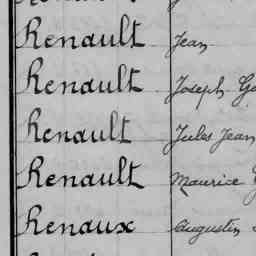 Renault Jean
Renault Joseph
Renault Jules Jean
Renault Maurice
Renaux Augustin